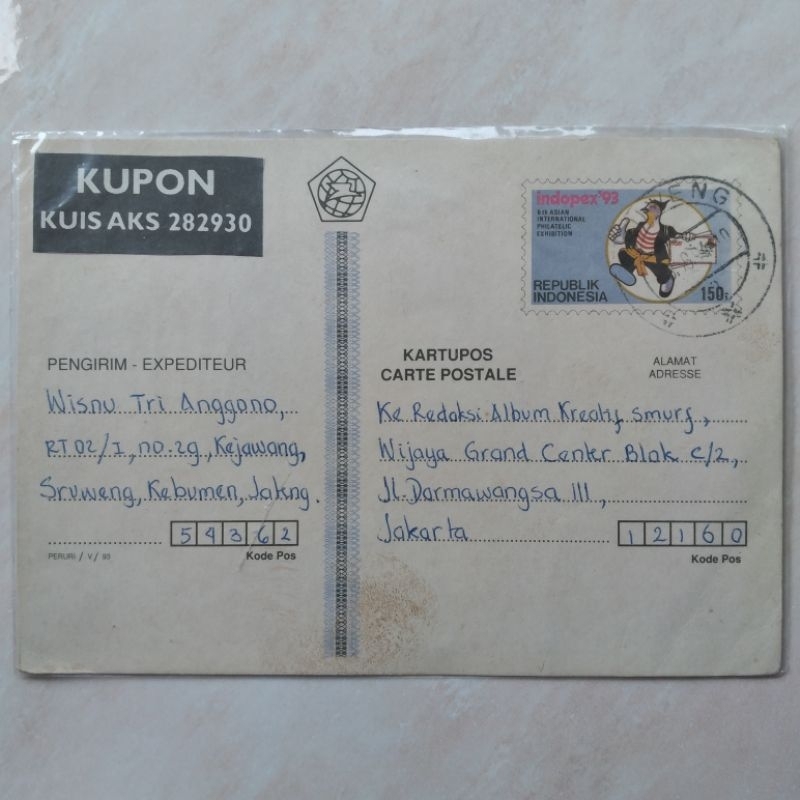 KUPON
KUIS AKS 282930
indopex'93
6th ASIAN
INTERNATIONAL
PHILATELIC
EXHIBITION
REPUBLIK
INDONESIA
150r
ENG
PENGIRIM - EXPEDITEUR
Wisnu Tri Anggono,
RT 02/I, no. 29, Kejawang,
Sruweng, Kebumen, Jateng.
54362
Kode Pos
PERURI / V / 93
KARTUPOS
CARTE POSTALE
ALAMAT
ADRESSE
Ke Redaksi Album Kreatif Smurf,
Wijaya Grand Center Blok C/2,
Jl. Darmawangsa III,
Jakarta
12160
Kode Pos